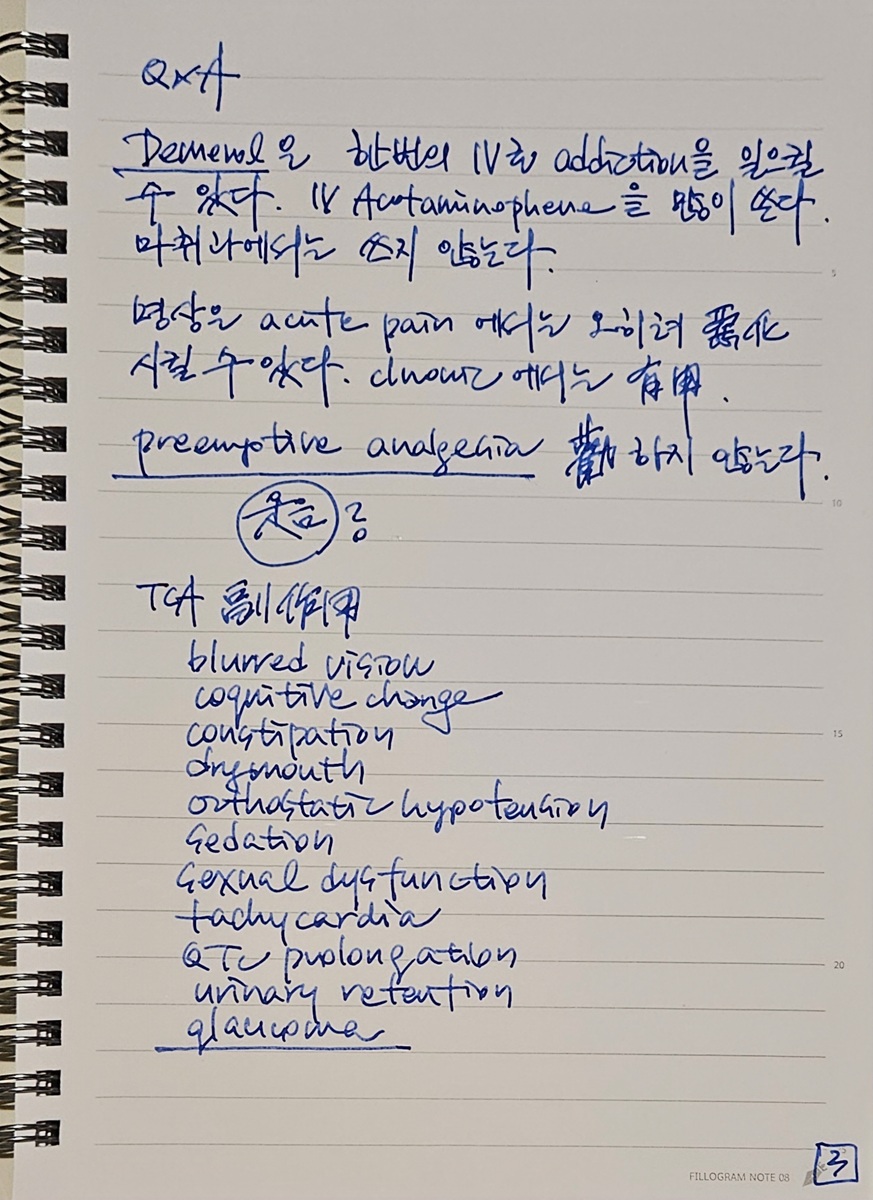 Q&A
Demerol은 한번의 IV로 addiction을 일으킬
수 있다. IV Acetaminophene을 많이 쓴다.
마취과에서는 쓰지 않는다.
명상은 acute pain 에서는 오히려 惡化
시킬 수 있다. chronic 에서는 有用.
preemptive analgesia 勸하지 않는다.
TCA 副作用
blurred vision
cognitive change
constipation
dry mouth
orthostatic hypotension
sedation
sexual dysfunction
tachycardia
QTc prolongation
urinary retention
glaucoma
5
10
15
20
FILLOGRAM NOTE 08
3